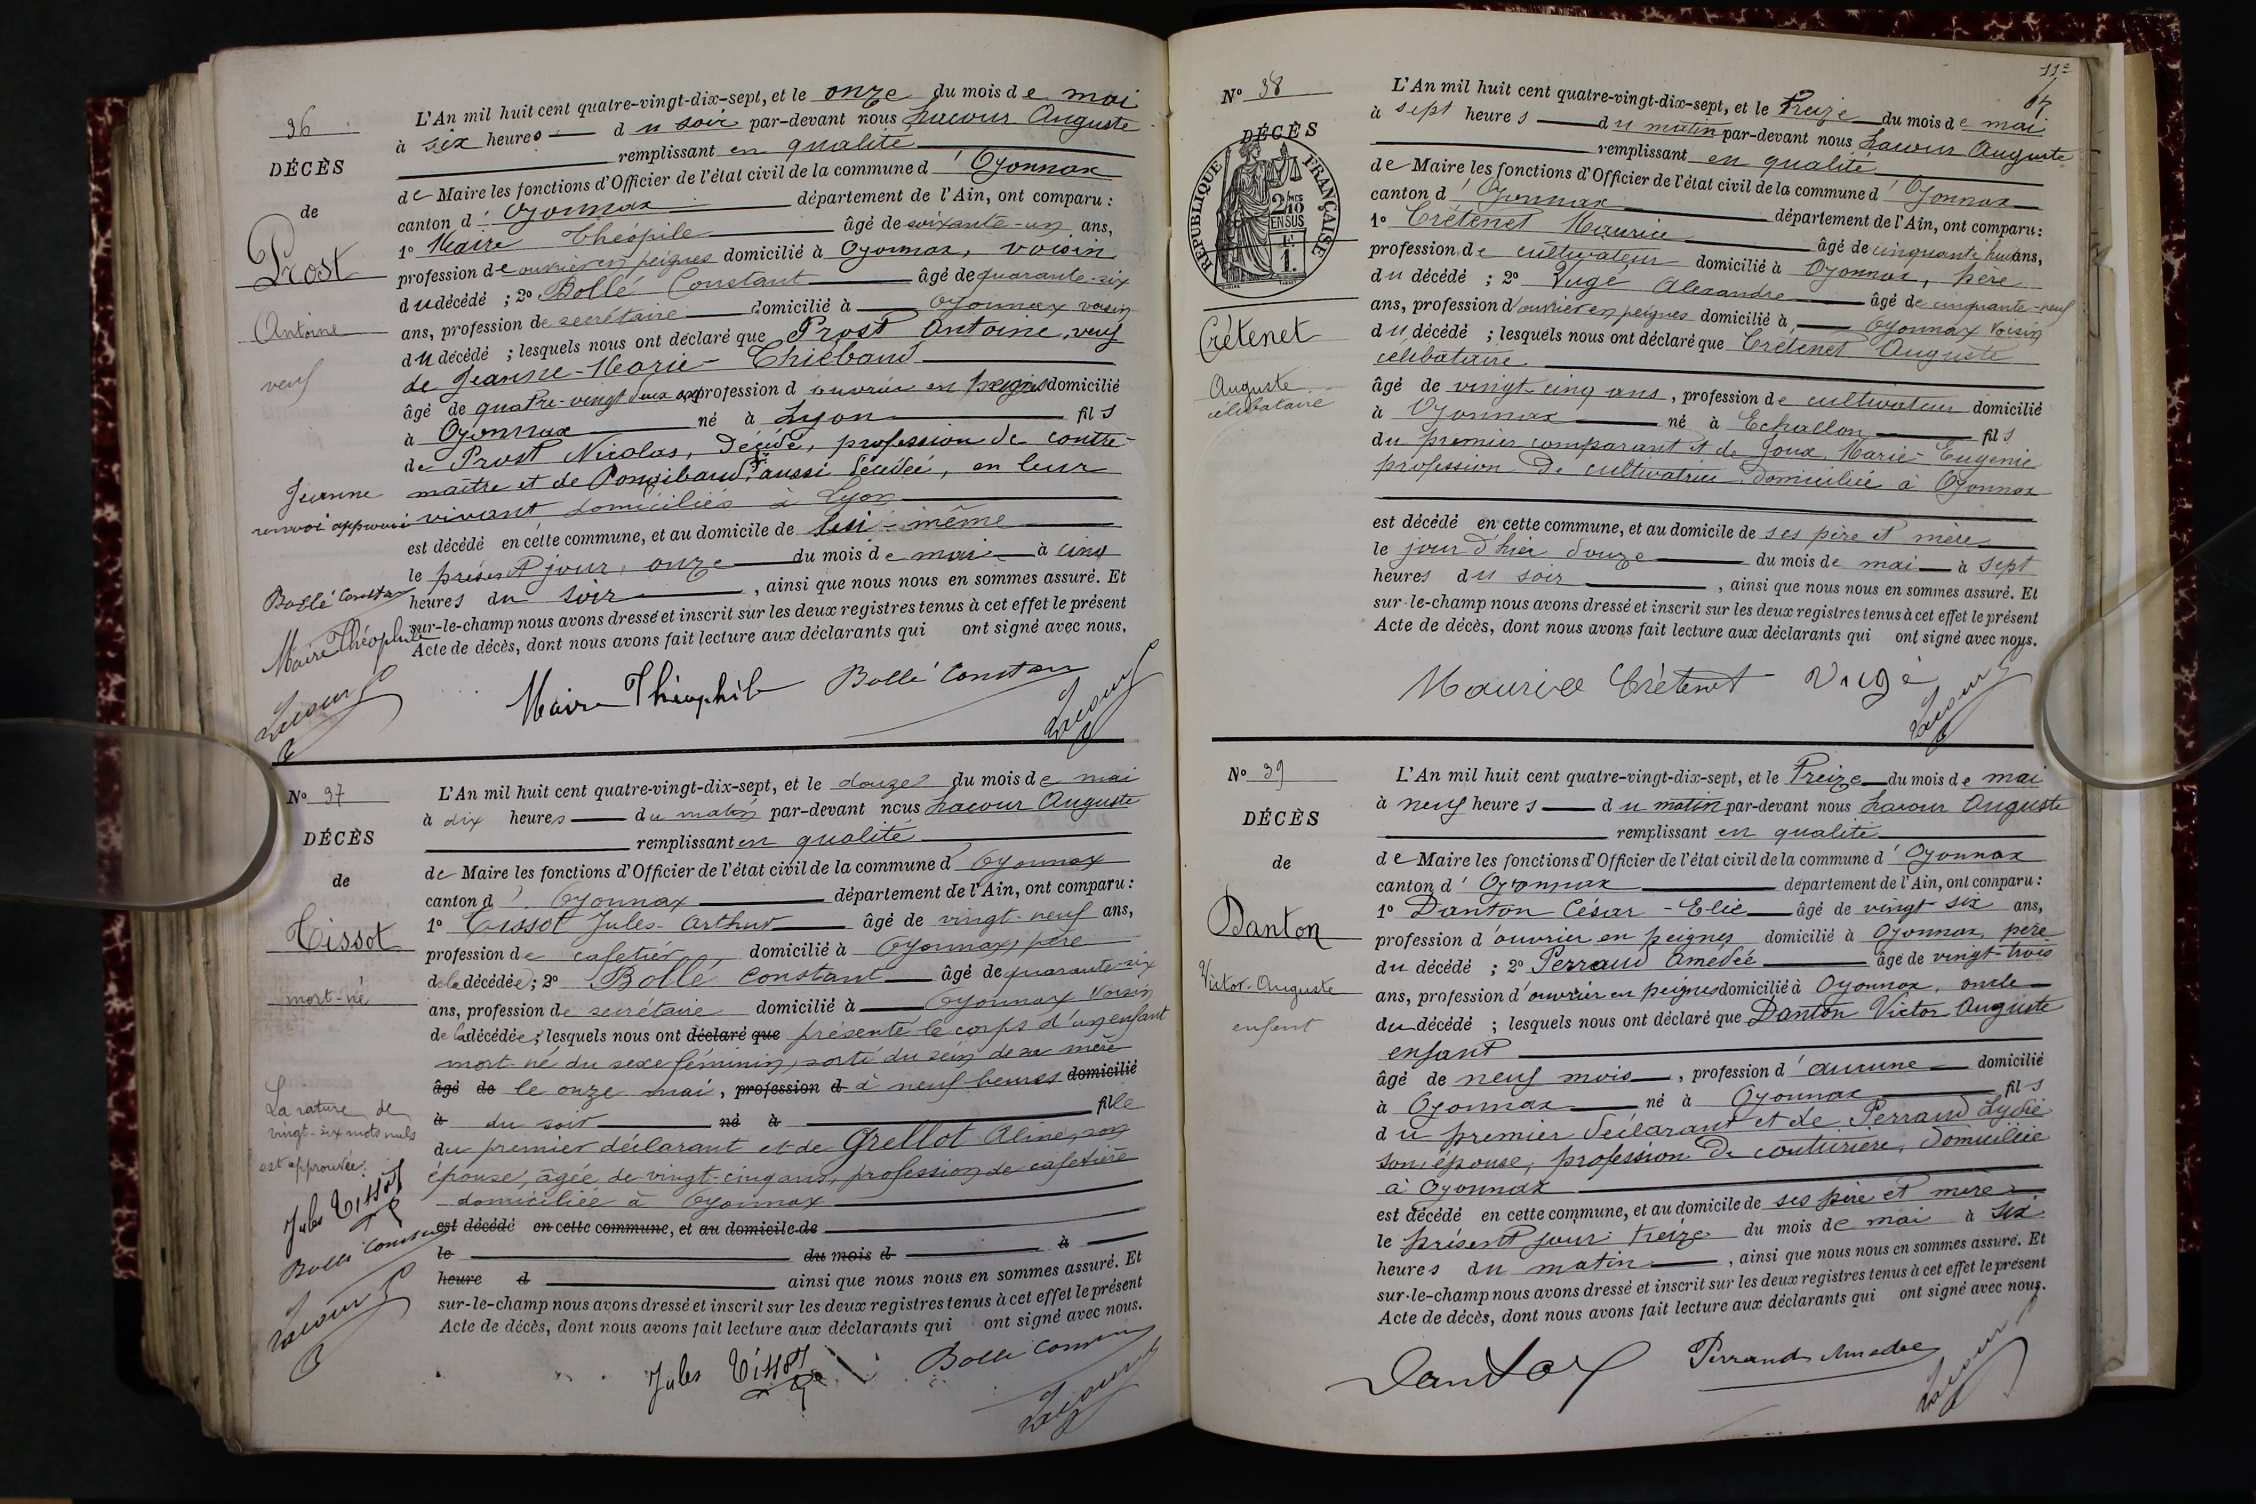 36
DÉCÈS
de
Prost
Antoine
veuf
Jeanne
renvoi approuvé
Bollé Constan
Maire Théophile
Lacour
L'An mil huit cent quatre-vingt-dix-sept, et le onze du mois de mai
à six heures du soir par-devant nous Lacour Auguste
remplissant en qualité
de Maire les fonctions d'Officier de l'état civil de la commune d'Oyonnax
canton d'Oyonnax département de l'Ain, ont comparu :
1° Maire Théopile âgé de soixante-un ans,
profession de ouvrier en peignes domicilié à Oyonnax, voisin
du décédé ; 2° Bollé Constant âgé de quarante-six
ans, profession de secrétaire domicilié à Oyonnax voisin
du décédé ; lesquels nous ont déclaré que Prost Antoine, veuf
de Jeanne-Marie Thiébaud
âgé de quatre-vingt deux ans profession d'ouvrier en peignes domicilié
à Oyonnax né à Lyon fils
de Prost Nicolas, décédé, profession de contre-
maître et de Ponsibaud, aussi décédée, en leur
vivant domiciliés à Lyon
est décédé en cette commune, et au domicile de lui-même
le présent jour, onze du mois de mai à cinq
heures du soir, ainsi que nous nous en sommes assuré. Et
sur-le-champ nous avons dressé et inscrit sur les deux registres tenus à cet effet le présent
Acte de décès, dont nous avons fait lecture aux déclarants qui ont signé avec nous.
Maire Théophile Bollé Constan Lacour
N° 37
DÉCÈS
de
Tissot
mort-né
La rature de
vingt-six mots nuls
est approuvée.
Jules Tissot
Bollé Constan
Lacour
L'An mil huit cent quatre-vingt-dix-sept, et le douze du mois de mai
à dix heures du matin par-devant nous Lacour Auguste
remplissant en qualité
de Maire les fonctions d'Officier de l'état civil de la commune d'Oyonnax
canton d'Oyonnax département de l'Ain, ont comparu :
1° Tissot Jules-Arthur âgé de vingt-neuf ans,
profession de cafetier domicilié à Oyonnax, père
de la décédée ; 2° Bollé Constant âgé de quarante-six
ans, profession de secrétaire domicilié à Oyonnax voisin
de la décédée ; lesquels nous ont déclaré que présenté le corps d'un enfant
mort-né du sexe féminin, sorti du sein de sa mère
âgé de le onze mai, profession d à neuf heures domicilié
à du soir né à fille
du premier déclarant et de Grellot Aline, son
épouse, âgée de vingt-cinq ans, profession de cafetière
domiciliée à Oyonnax
est décédé en cette commune, et au domicile de
le du mois d à
heure d ainsi que nous nous en sommes assuré. Et
sur-le-champ nous avons dressé et inscrit sur les deux registres tenus à cet effet le présent
Acte de décès, dont nous avons fait lecture aux déclarants qui ont signé avec nous.
Jules Tissot Bollé Constan Lacour
N° 38
DÉCÈS
RÉPUBLIQUE FRANÇAISE
2/10
EN SUS
1F
Crétenet
Auguste
célibataire
L'An mil huit cent quatre-vingt-dix-sept, et le treize du mois de mai
à sept heures du matin par-devant nous Lacour Auguste
remplissant en qualité
de Maire les fonctions d'Officier de l'état civil de la commune d'Oyonnax
canton d'Oyonnax département de l'Ain, ont comparu :
1° Crétenet Maurice âgé de cinquante huit ans,
profession de cultivateur domicilié à Oyonnax, père
du décédé ; 2° Vugé Alexandre âgé de cinquante-neuf
ans, profession d'ouvrier en peignes domicilié à Oyonnax voisin
du décédé ; lesquels nous ont déclaré que Crétenet Auguste
célibataire
âgé de vingt cinq ans, profession de cultivateur domicilié
à Oyonnax né à Echallon fils
du premier comparant et de Joux Marie-Eugénie
profession de cultivatrice domiciliée à Oyonnax
est décédé en cette commune, et au domicile de ses père et mère
le jour d'hier douze du mois de mai à sept
heures du soir, ainsi que nous nous en sommes assuré. Et
sur-le-champ nous avons dressé et inscrit sur les deux registres tenus à cet effet le présent
Acte de décès, dont nous avons fait lecture aux déclarants qui ont signé avec nous.
Maurice Crétenet Vugé Lacour
N° 39
DÉCÈS
de
Danton
Victor-Auguste
enfant
L'An mil huit cent quatre-vingt-dix-sept, et le treize du mois de mai
à neuf heures du matin par-devant nous Lacour Auguste
remplissant en qualité
de Maire les fonctions d'Officier de l'état civil de la commune d'Oyonnax
canton d'Oyonnax département de l'Ain, ont comparu :
1° Danton César-Elie âgé de vingt six ans,
profession d'ouvrier en peignes domicilié à Oyonnax, père
du décédé ; 2° Perraud Amédée âgé de vingt-trois
ans, profession d'ouvrier en peignes domicilié à Oyonnax, oncle
du décédé ; lesquels nous ont déclaré que Danton Victor Auguste
enfant
âgé de neuf mois, profession d'aucune domicilié
à Oyonnax né à Oyonnax fils
du premier déclarant et de Perraud Lydie
son épouse, profession de couturière, domiciliée
à Oyonnax
est décédé en cette commune, et au domicile de ses père et mère
le présent jour treize du mois de mai à six
heures du matin, ainsi que nous nous en sommes assuré. Et
sur-le-champ nous avons dressé et inscrit sur les deux registres tenus à cet effet le présent
Acte de décès, dont nous avons fait lecture aux déclarants qui ont signé avec nous.
Danton Perraud Amédée Lacour